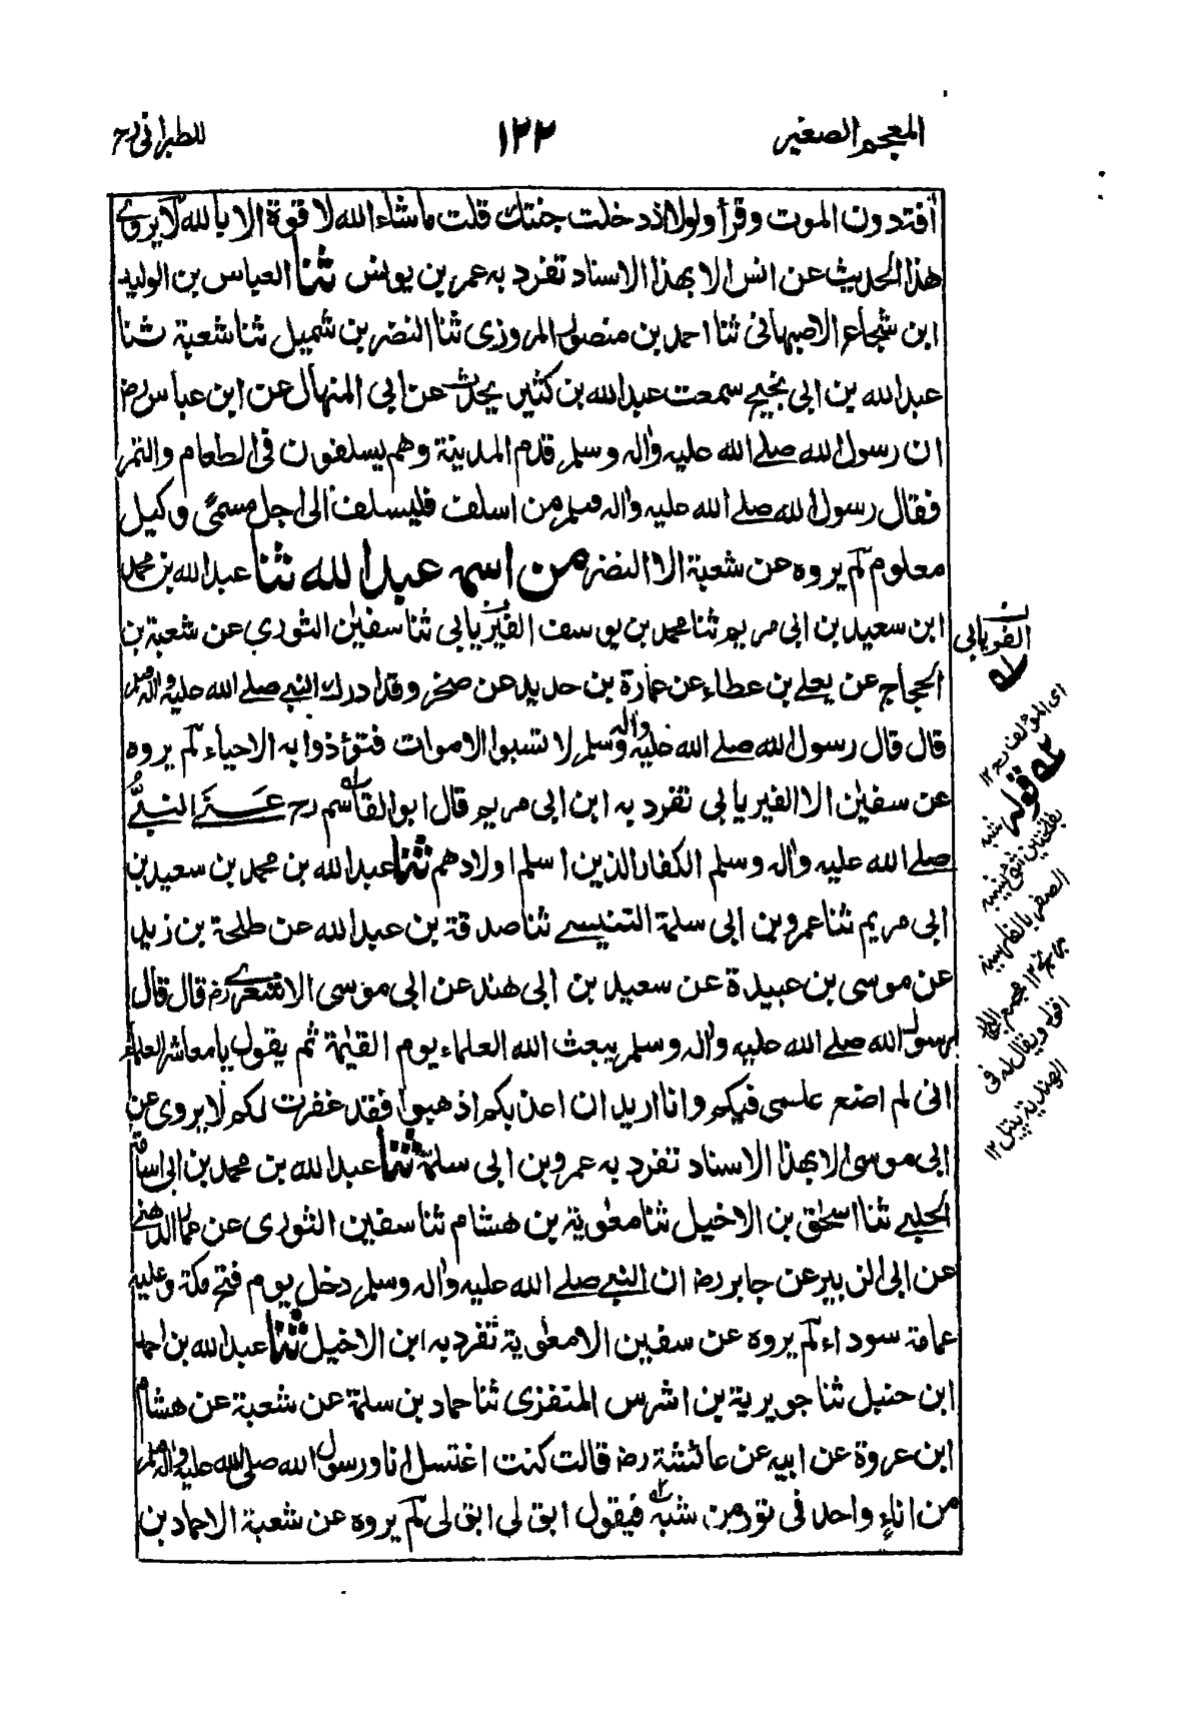 المعجم الصغير ١٢٢ للطبرانی رح
أفتدون الموت وقرأ ولولا اذ دخلت جنتك قلت ما شاء الله لا قوة الا بالله لا يروى
هذا الحديث عن انس الا بهذا الاسناد تفرد به عمر بن يونس ثنا العباس بن الوليد
ابن شجاع الاصبهانى ثنا احمد بن منصور المروزى ثنا النضر بن شميل ثنا شعبة ثنا
عبد الله بن ابى نجيح سمعت عبد الله بن كثير يحدث عن ابى المنهال عن ابن عباس رض
ان رسول الله صلے الله عليه واٰله وسلم قدم المدينة وهم يسلفون فى الطعام والتمر
فقال رسول الله صلے الله عليه واٰله وسلم من اسلف فليسلف الى اجل مسمًى وكيل
معلوم لم يروه عن شعبة الا النضر من اسمہ عبد الله ثنا عبد الله بن محمد
ابن سعيد بن ابى مريم ثنا محمد بن يوسف الفيريابى ثنا سفيٰن الثورى عن شعبة بن
الحجاج عن يعلے بن عطاء عن عمارة بن حديد عن صخر وقد ادرك النبے صلے الله عليه واٰله وسلم
قال قال رسول الله صلے الله عليه واٰله وسلم لا تسبوا الاموات فتؤذوا به الاحياء لم يروه
عن سفيٰن الا الفيريابى تفرد به ابن ابى مريم قال ابو القاسم رح عنے النبىُّ
صلے الله عليه واٰله وسلم الكفار الذين اسلم اولادهم ثنا عبد الله بن محمد بن سعيد بن
ابى مريم ثنا عمرو بن ابى سلمة التنيسے ثنا صدقة بن عبد الله عن طلحة بن زيد
عن موسى بن عبيدة عن سعيد بن ابى هند عن ابى موسى الاشعرے رض قال قال
رسول الله صلے الله عليه واٰله وسلم يبعث الله العلماء يوم القيٰمة ثم يقول يا معاشر العلماء
انى لم اضع علمى فيكم وانا اريد ان اعذبكم اذهبوا فقد غفرت لكم لا يروى عن
ابى موسى الا بهذا الاسناد تفرد به عمرو بن ابى سلمة ثنا عبد الله بن محمد بن ابى اسامة
الحلبے ثنا اسحٰق بن الاخيل ثنا معٰوية بن هشام ثنا سفين الثورى عن عمار الدهنے
عن ابى الزبير عن جابر رض ان النبے صلے الله عليه واٰله وسلم دخل يوم فتح مكة وعليه
عمامة سوداء لم يروه عن سفين الا معٰوية تفرد به ابن الاخيل ثنا عبد الله بن احمد
ابن حنبل ثنا جويرية بن اشرس المنقرى ثنا حماد بن سلمة عن شعبة عن هشام
ابن عروة عن ابيه عن عائشة رض قالت كنت اغتسل انا ورسول الله صلى الله عليه واٰله وسلم
من اناءٍ واحد فى تور من شبه فيقول ابق لى ابق لى لم يروه عن شعبة الا حماد بن
الفريابى
اى المؤلف رح ١٢
قوله شبه